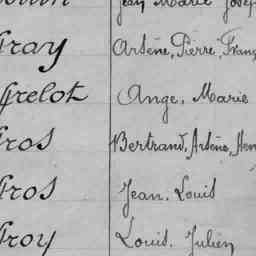 Jean Marie Josep
Gray Arsène, Pierre, Franç
Grelot Ange, Marie
Gros Bertrand, Arsène, Hen
Gros Jean, Louis
Groy Louis, Julien